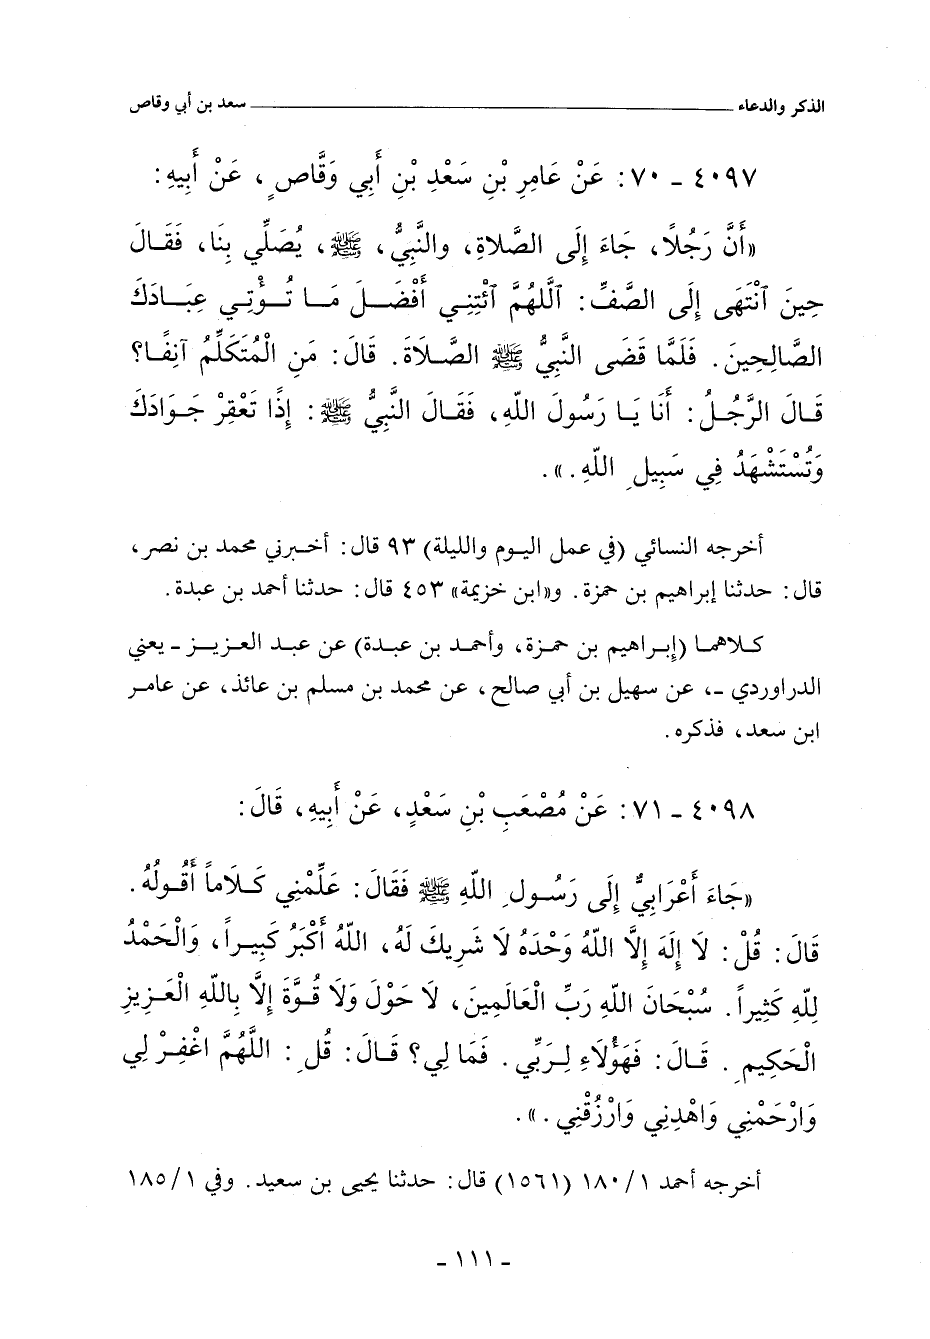 الذكر والدعاء ــــــــــــــــــــــــــــــــــــــــــــــــ سعد بن أبي وقاص
٤٠٩٧ - ٧٠: عَنْ عَامِرِ بْنِ سَعْدِ بْنِ أَبِي وَقَّاصٍ، عَنْ أَبِيهِ:
«أَنَّ رَجُلاً، جَاءَ إِلَى الصَّلاَةِ، والنَّبِيُّ، ﷺ، يُصَلِّي بِنَا، فَقَالَ
حِينَ ٱنْتَهَى إِلَى الصَّفِّ: ٱللَّهُمَّ ٱئْتِنِي أَفْضَلَ مَا تُؤْتِي عِبَادَكَ
الصَّالِحِينَ. فَلَمَّا قَضَى النَّبِيُّ ﷺ الصَّلَاةَ. قَالَ: مَنِ الْمُتَكَلِّمُ آنِفًا؟
قَالَ الرَّجُلُ: أَنَا يَا رَسُولَ اللّهِ، فَقَالَ النَّبِيُّ ﷺ: إِذًا تَعْقِرْ جَوَادَكَ
وَتُسْتَشْهَدُ فِي سَبِيلِ اللّهِ.».
أخرجه النسائي (في عمل اليوم والليلة) ٩٣ قال: أخبرني محمد بن نصر،
قال: حدثنا إبراهيم بن حمزة. و«ابن خزيمة» ٤٥٣ قال: حدثنا أحمد بن عبدة.
كلاهما (إبراهيم بن حمزة، وأحمد بن عبدة) عن عبد العزيز - يعني
الدراوردي -، عن سهيل بن أبي صالح، عن محمد بن مسلم بن عائذ، عن عامر
ابن سعد، فذكره.
٤٠٩٨ - ٧١: عَنْ مُصْعَبِ بْنِ سَعْدٍ، عَنْ أَبِيهِ، قَالَ:
«جَاءَ أَعْرَابِيٌّ إِلَى رَسُولِ اللّهِ ﷺ فَقَالَ: عَلِّمْنِي كَلَاماً أَقُولُهُ.
قَالَ: قُلْ: لَا إِلَهَ إِلَّا اللّهُ وَحْدَهُ لَا شَرِيكَ لَهُ، اللّهُ أَكْبَرُ كَبِيراً، وَالْحَمْدُ
لِلّهِ كَثِيراً. سُبْحَانَ اللّهِ رَبِّ الْعَالَمِينَ، لَا حَوْلَ وَلَا قُوَّةَ إِلَّا بِاللّهِ الْعَزِيزِ
الْحَكِيمِ. قَالَ: فَهَؤُلَاءِ لِرَبِّي. فَمَا لِي؟ قَالَ: قُلِ: اللَّهُمَّ اغْفِرْ لِي
وَارْحَمْنِي وَاهْدِنِي وَارْزُقْنِي.».
أخرجه أحمد ١/١٨٠ (١٥٦١) قال: حدثنا يحيى بن سعيد. وفي ١/١٨٥
- ١١١ -